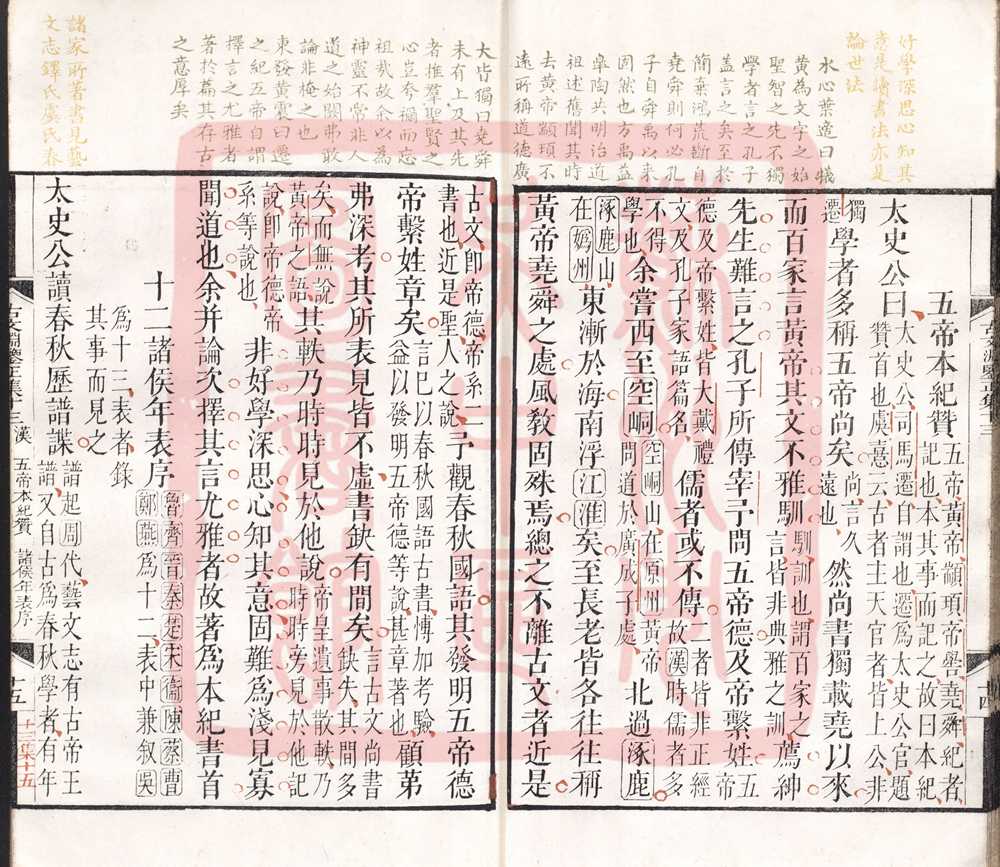 好學深思心知其
意是讀書法亦是
論世法
水心葉適曰犧
黃為文字之始
聖智之先不獨
學者言之孔子
蓋言之矣至於
簡棄鴻荒斷自
堯舜則何必孔
子自舜禹以来
固然也方禹益
皋陶共明治道
祖述舊聞其時
去黃帝顓頊不
遠所稱道德廣
五帝本紀贊五帝黃帝顓頊帝嚳堯舜紀者記也本其事而記之故曰本紀
太史公曰太史公司馬遷自謂也遷爲太史公官題贊首也虞憙云古者主天官者皆上公非獨遷
學者多稱五帝尚矣尚言久遠也然尚書獨載堯以來
而百家言黃帝其文不雅馴馴訓也謂百家之言皆非典雅之訓薦紳
先生難言之孔子所傳宰予問五帝德及帝繫姓五帝德及帝繫姓皆大戴禮文及孔子家語篇名
儒者或不傳二者皆非正經故漢時儒者多不得學也余嘗西至空峒空峒山在原州黃帝問道於廣成子處北過涿鹿
涿鹿山在嬀州東漸於海南浮江淮矣至長老皆各往往稱
黃帝堯舜之處風敎固殊焉總之不離古文者近是
大皆獨曰堯舜
未有上及其先
者推羣聖賢之
心豈夸禰而忘
祖哉故余以為
神靈不常非人
道之始闕弗敢
論非掩之也
東發黃震曰遷
之紀五帝自謂
擇言之尤雅者
著於篇其存古
之意厚矣
諸家所著書見藝
文志鐸氏虞氏春
古文卽帝德帝系二書也近是聖人之說予觀春秋國語其發明五帝德
帝繫姓章矣言巳以春秋國語古書愽加考驗益以發明五帝德等說甚章著也顧弟
弗深考其所表見皆不虛書缺有間矣言古文尚書缺失其間多
矣而無說黃帝之語其軼乃時時見於他說帝皇遺事散軼乃時時旁見於他記
說卽帝德帝系等說也非好學深思心知其意固難爲淺見寡
聞道也余并論次擇其言尤雅者故著爲本紀書首
十二諸侯年表序魯齊晉秦楚宋衞陳蔡曹鄭燕爲十二表中兼叙吳
爲十三表者錄其事而見之
太史公讀春秋歷譜諜譜起周代藝文志有古帝王譜又自古爲春秋學者有年
漢
五帝本紀贊 諸侯年表序
十五
十三集十五